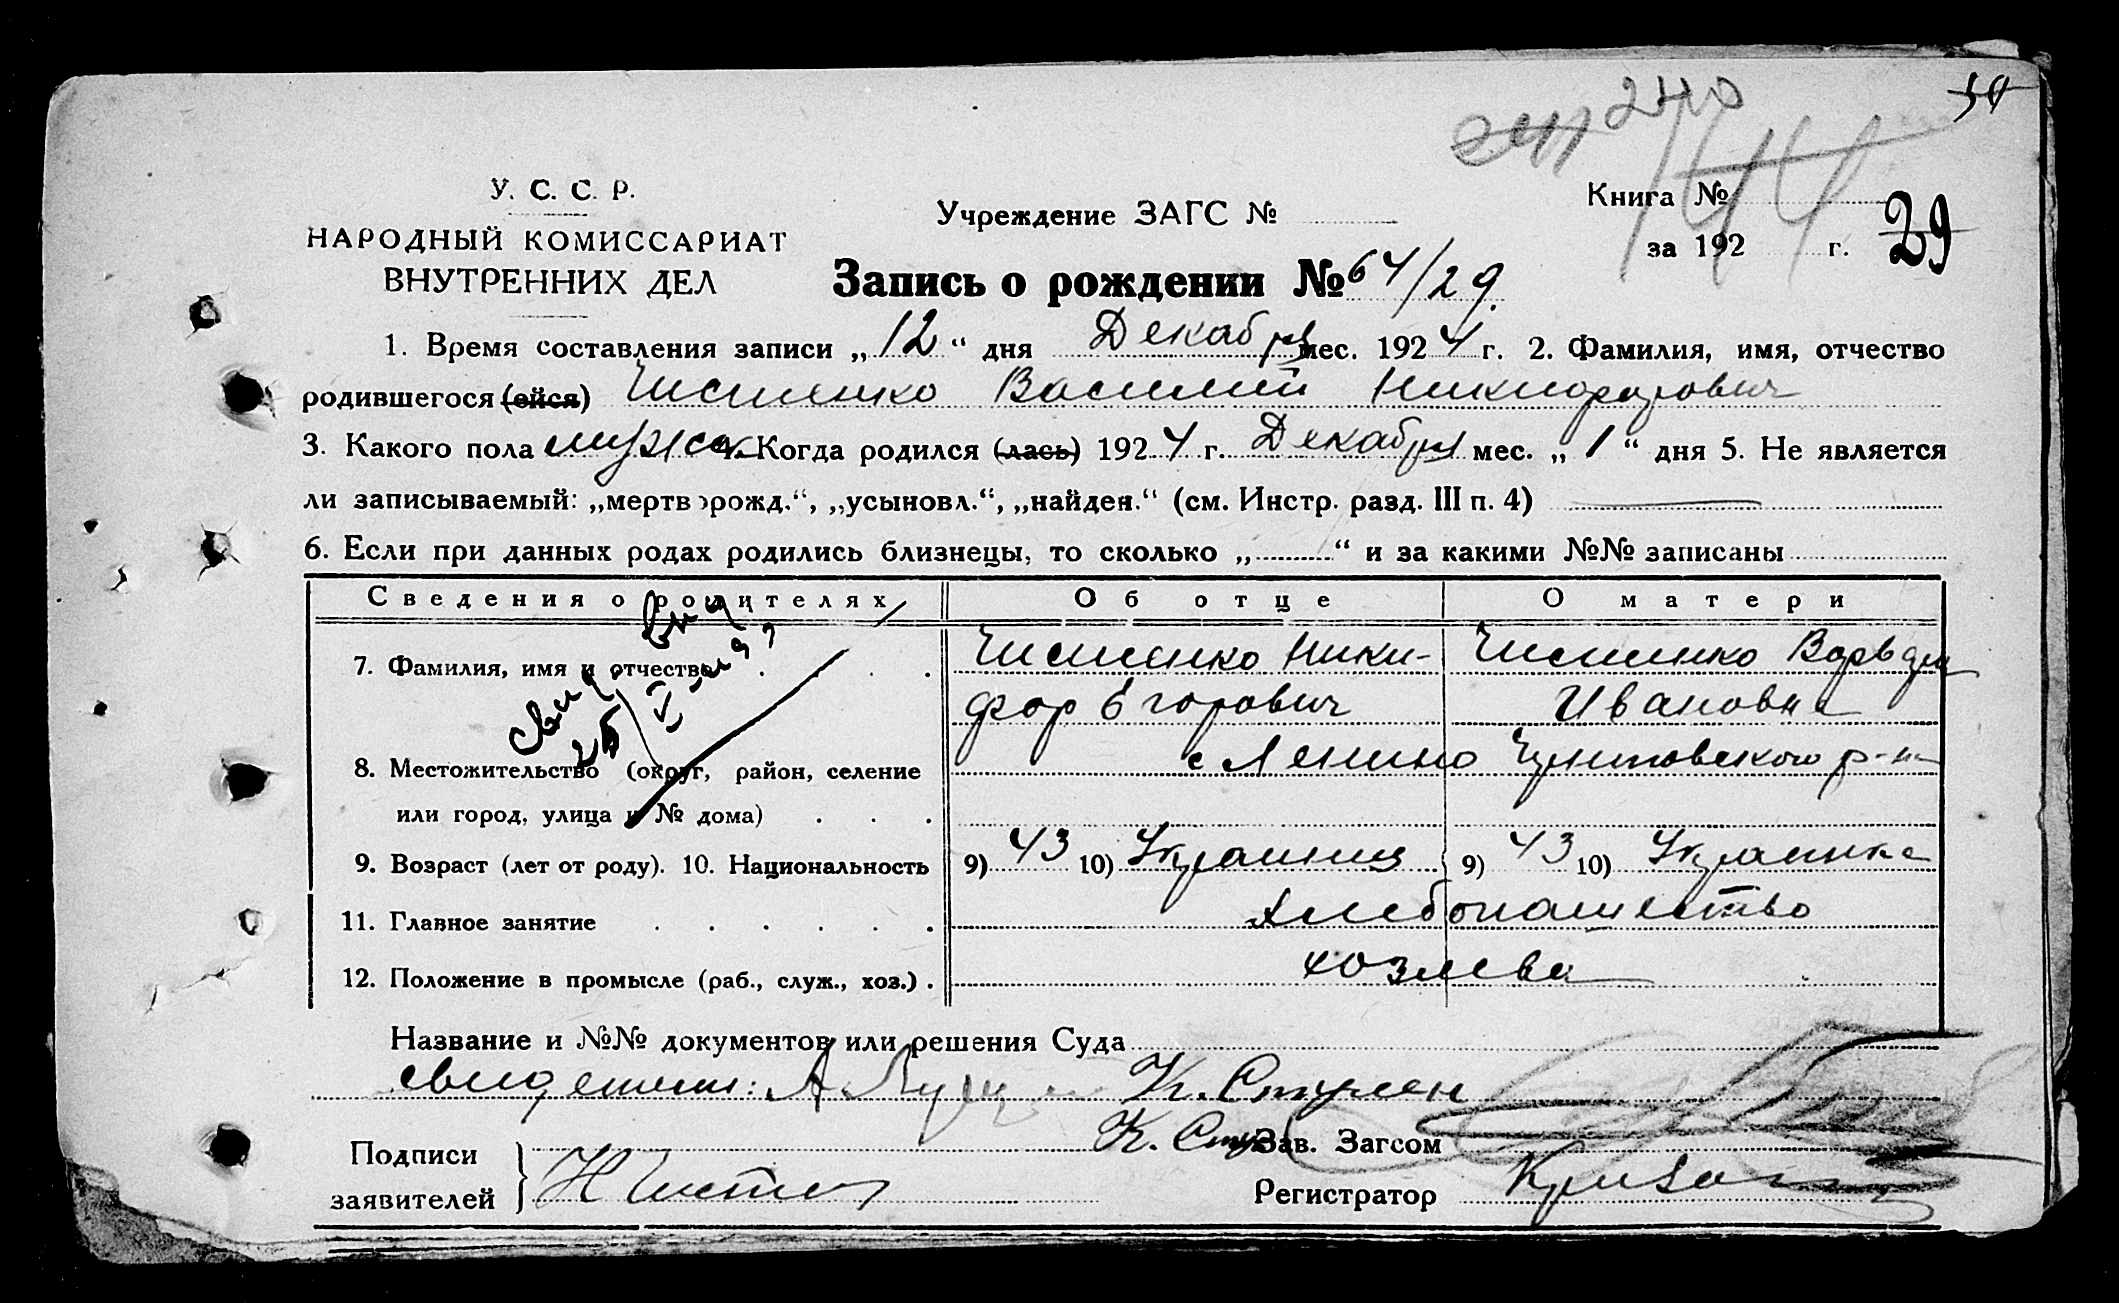 240 50
241
144
У. С. С. Р.
НАРОДНЫЙ КОМИССАРИАТ
ВНУТРЕННИХ ДЕЛ
Учреждение ЗАГС №
Книга №
за 192 г. 29
Запись о рождении № 64/29
1. Время составления записи „12“ дня Декабря мес. 1924 г. 2. Фамилия, имя, отчество
родившегося (ейся) Василий Никифорович
3. Какого пола мужск. Когда родился (лась) 1924 г. Декабря мес. „1“ дня 5. Не является
ли записываемый: „мертворожд.“, „усыновл.“, „найден.“ (см. Инстр. разд. III п. 4)
6. Если при данных родах родились близнецы, то сколько „ “ и за какими №№ записаны
Сведения о родителях Об отце О матери
7. Фамилия, имя и отчество Ники-
фор Егорович
Ивановна
8. Местожительство (округ, район, селение
или город, улица и № дома)
с Ленино р-на
9. Возраст (лет от роду). 10. Национальность 9) 43 10) Украинец 9) 43 10) Украинка
11. Главное занятие Хлебопашество
12. Положение в промысле (раб., служ., хоз.) хозяева
Название и №№ документов или решения Суда
свидетели: К.
Подписи
заявителей
К.
Зав. Загсом
Регистратор